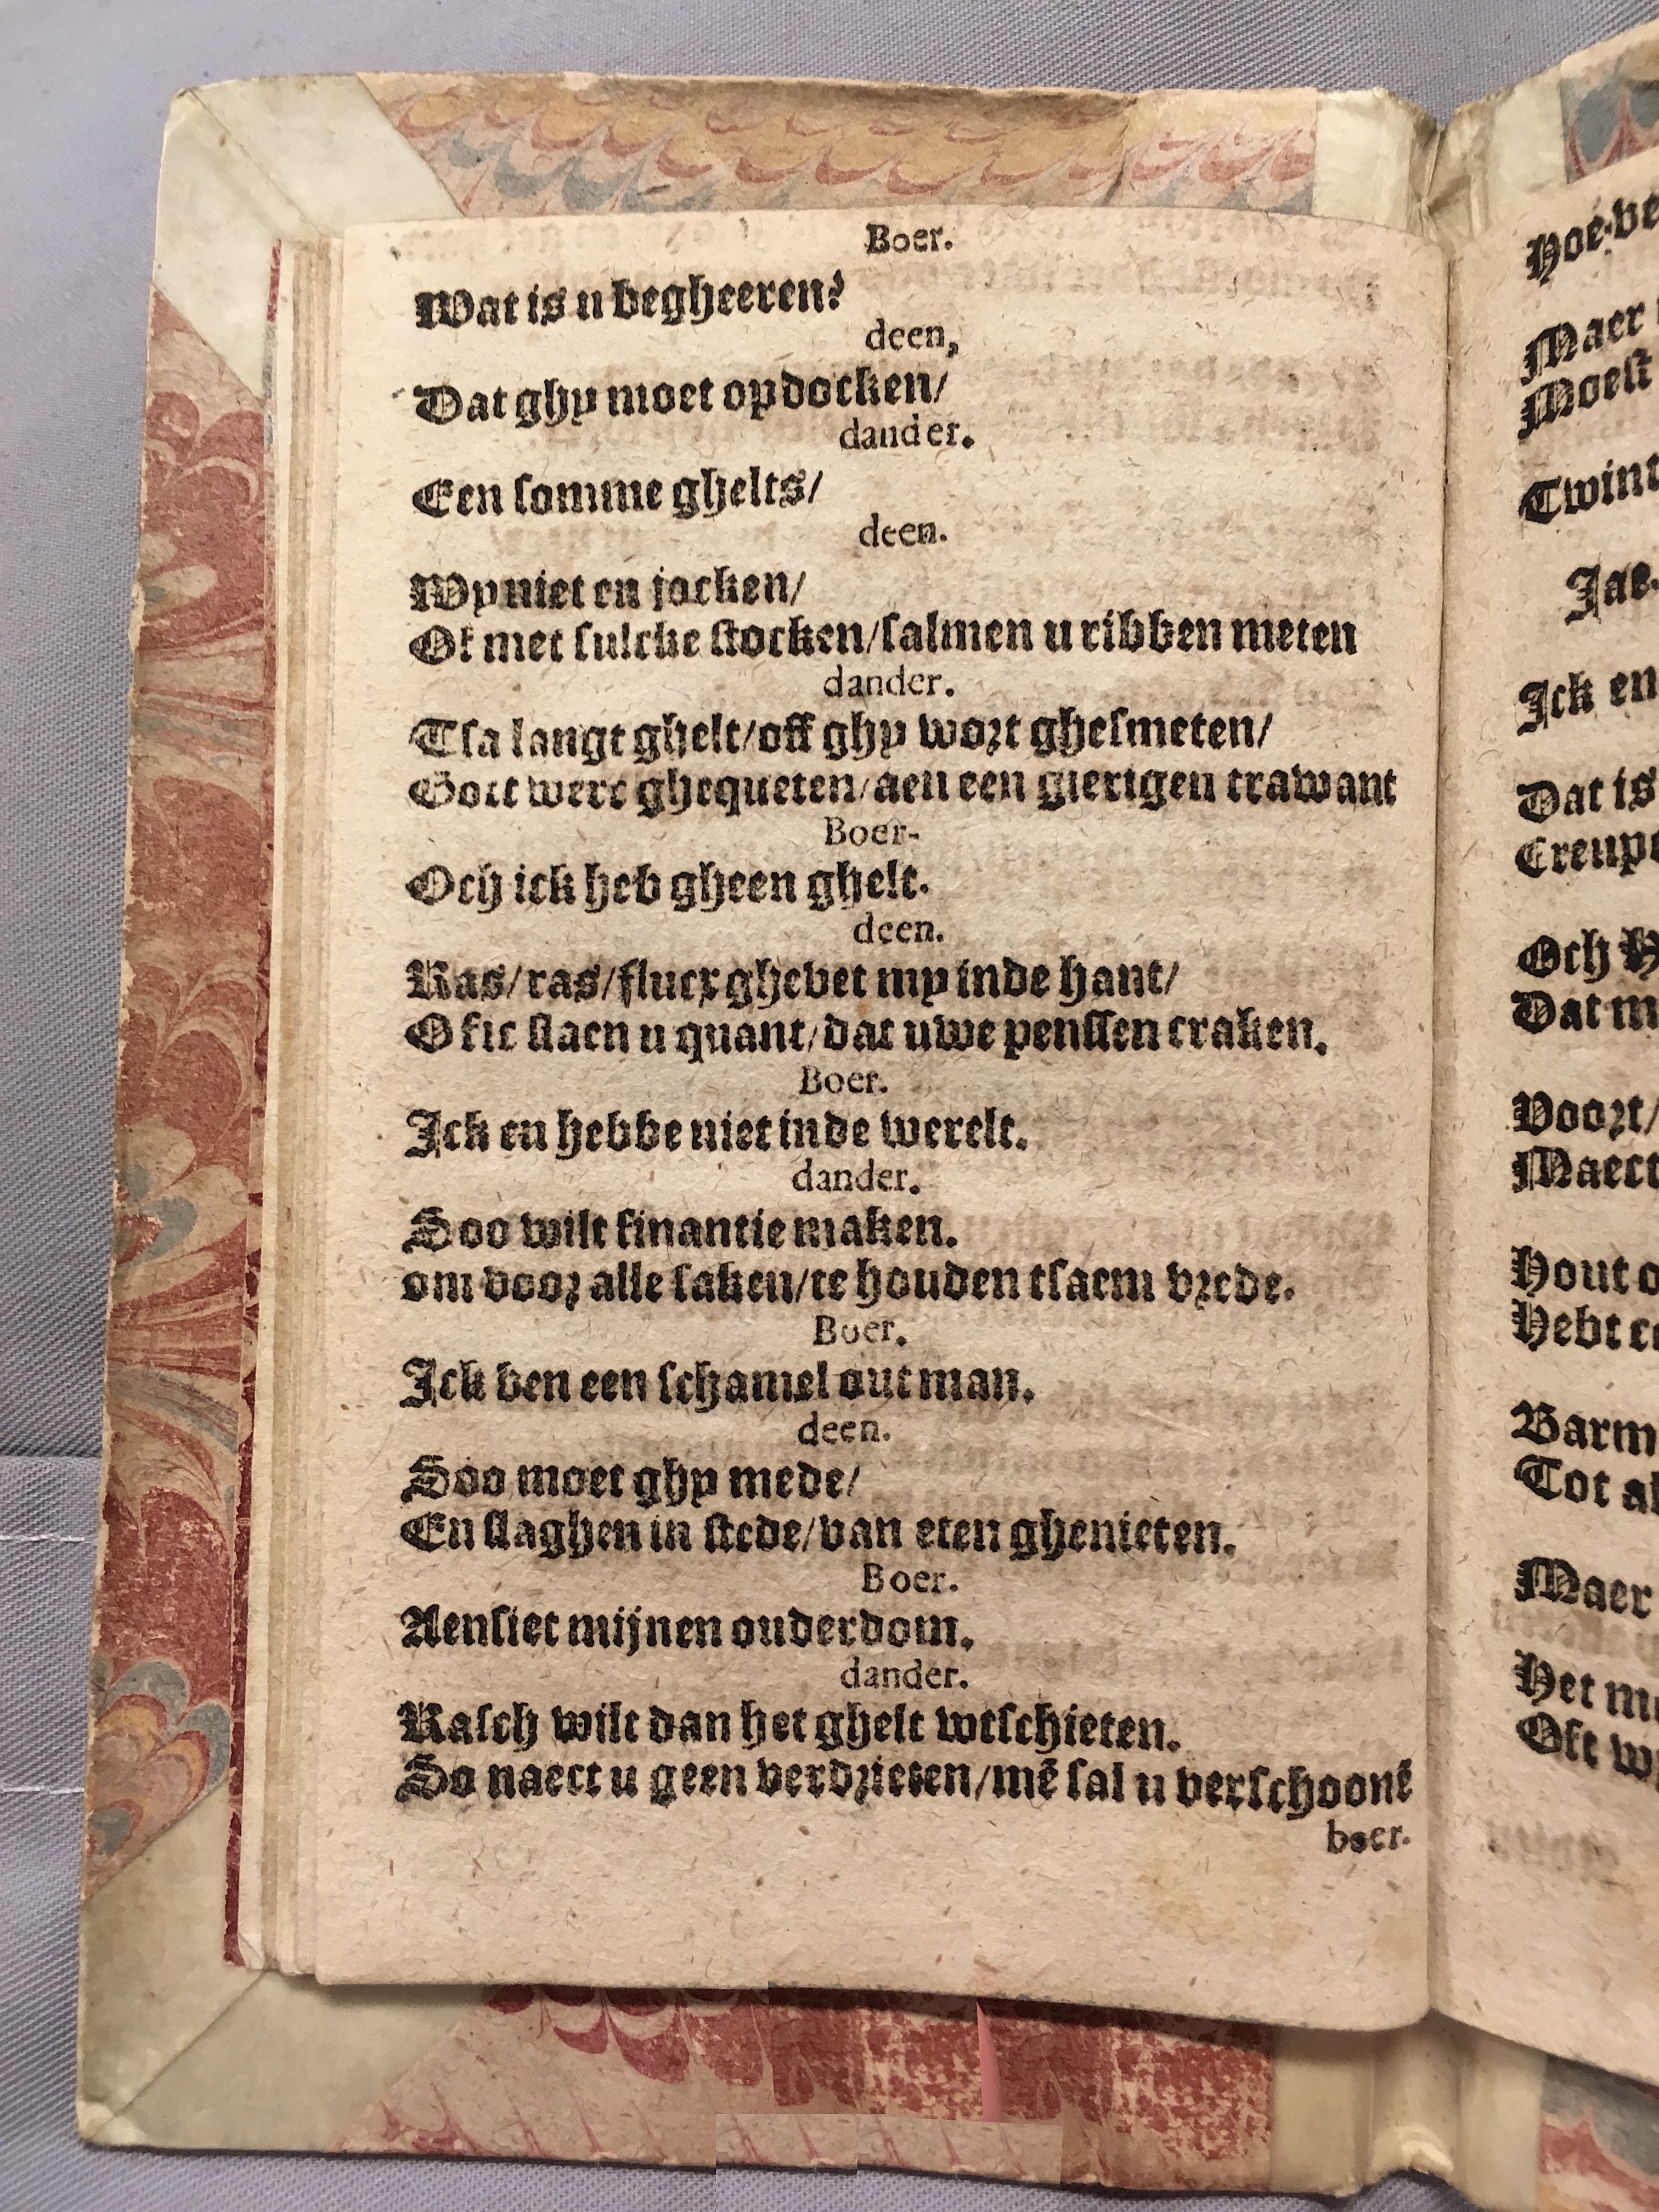 Boer.
Wat is u begheeren?
deen,
Dat ghy moet opdocken/
dander.
Een somme ghelts/
deen.
Wy niet en jocken/
Of met sulcke stocken/salmen u ribben meten
dander.
Tsa langt ghelt/off ghy wort ghesmeten/
Gott were ghequeten/aen een gierigen trawant
Boer-
Och ick heb gheen ghelt.
deen.
Ras/ras/flucx ghevet my inde hant/
Ofic slaen u quant/dat uwe penssen craken.
Boer.
Ick en hebbe niet inde werelt.
dander.
Soo wilt finantie maken.
om voor alle saken/te houden tsaem vrede.
Boer.
Ick ben een schamel out man.
deen.
Soo moet ghy mede/
En slaghen in stede/van eten ghenieten.
Boer.
Aensiet mijnen ouderdom.
dander.
Rasch wilt dan het ghelt wtschieten.
So naect u geen verdrieten/mē sal u verschoonē
boer.
Maer
Moest
Twint
Jae
Ick en
Dat is
Och
Dat m
Voort/
Maect
Hout o
Hebt
Barm
Tot al
Maer
Het
Oft